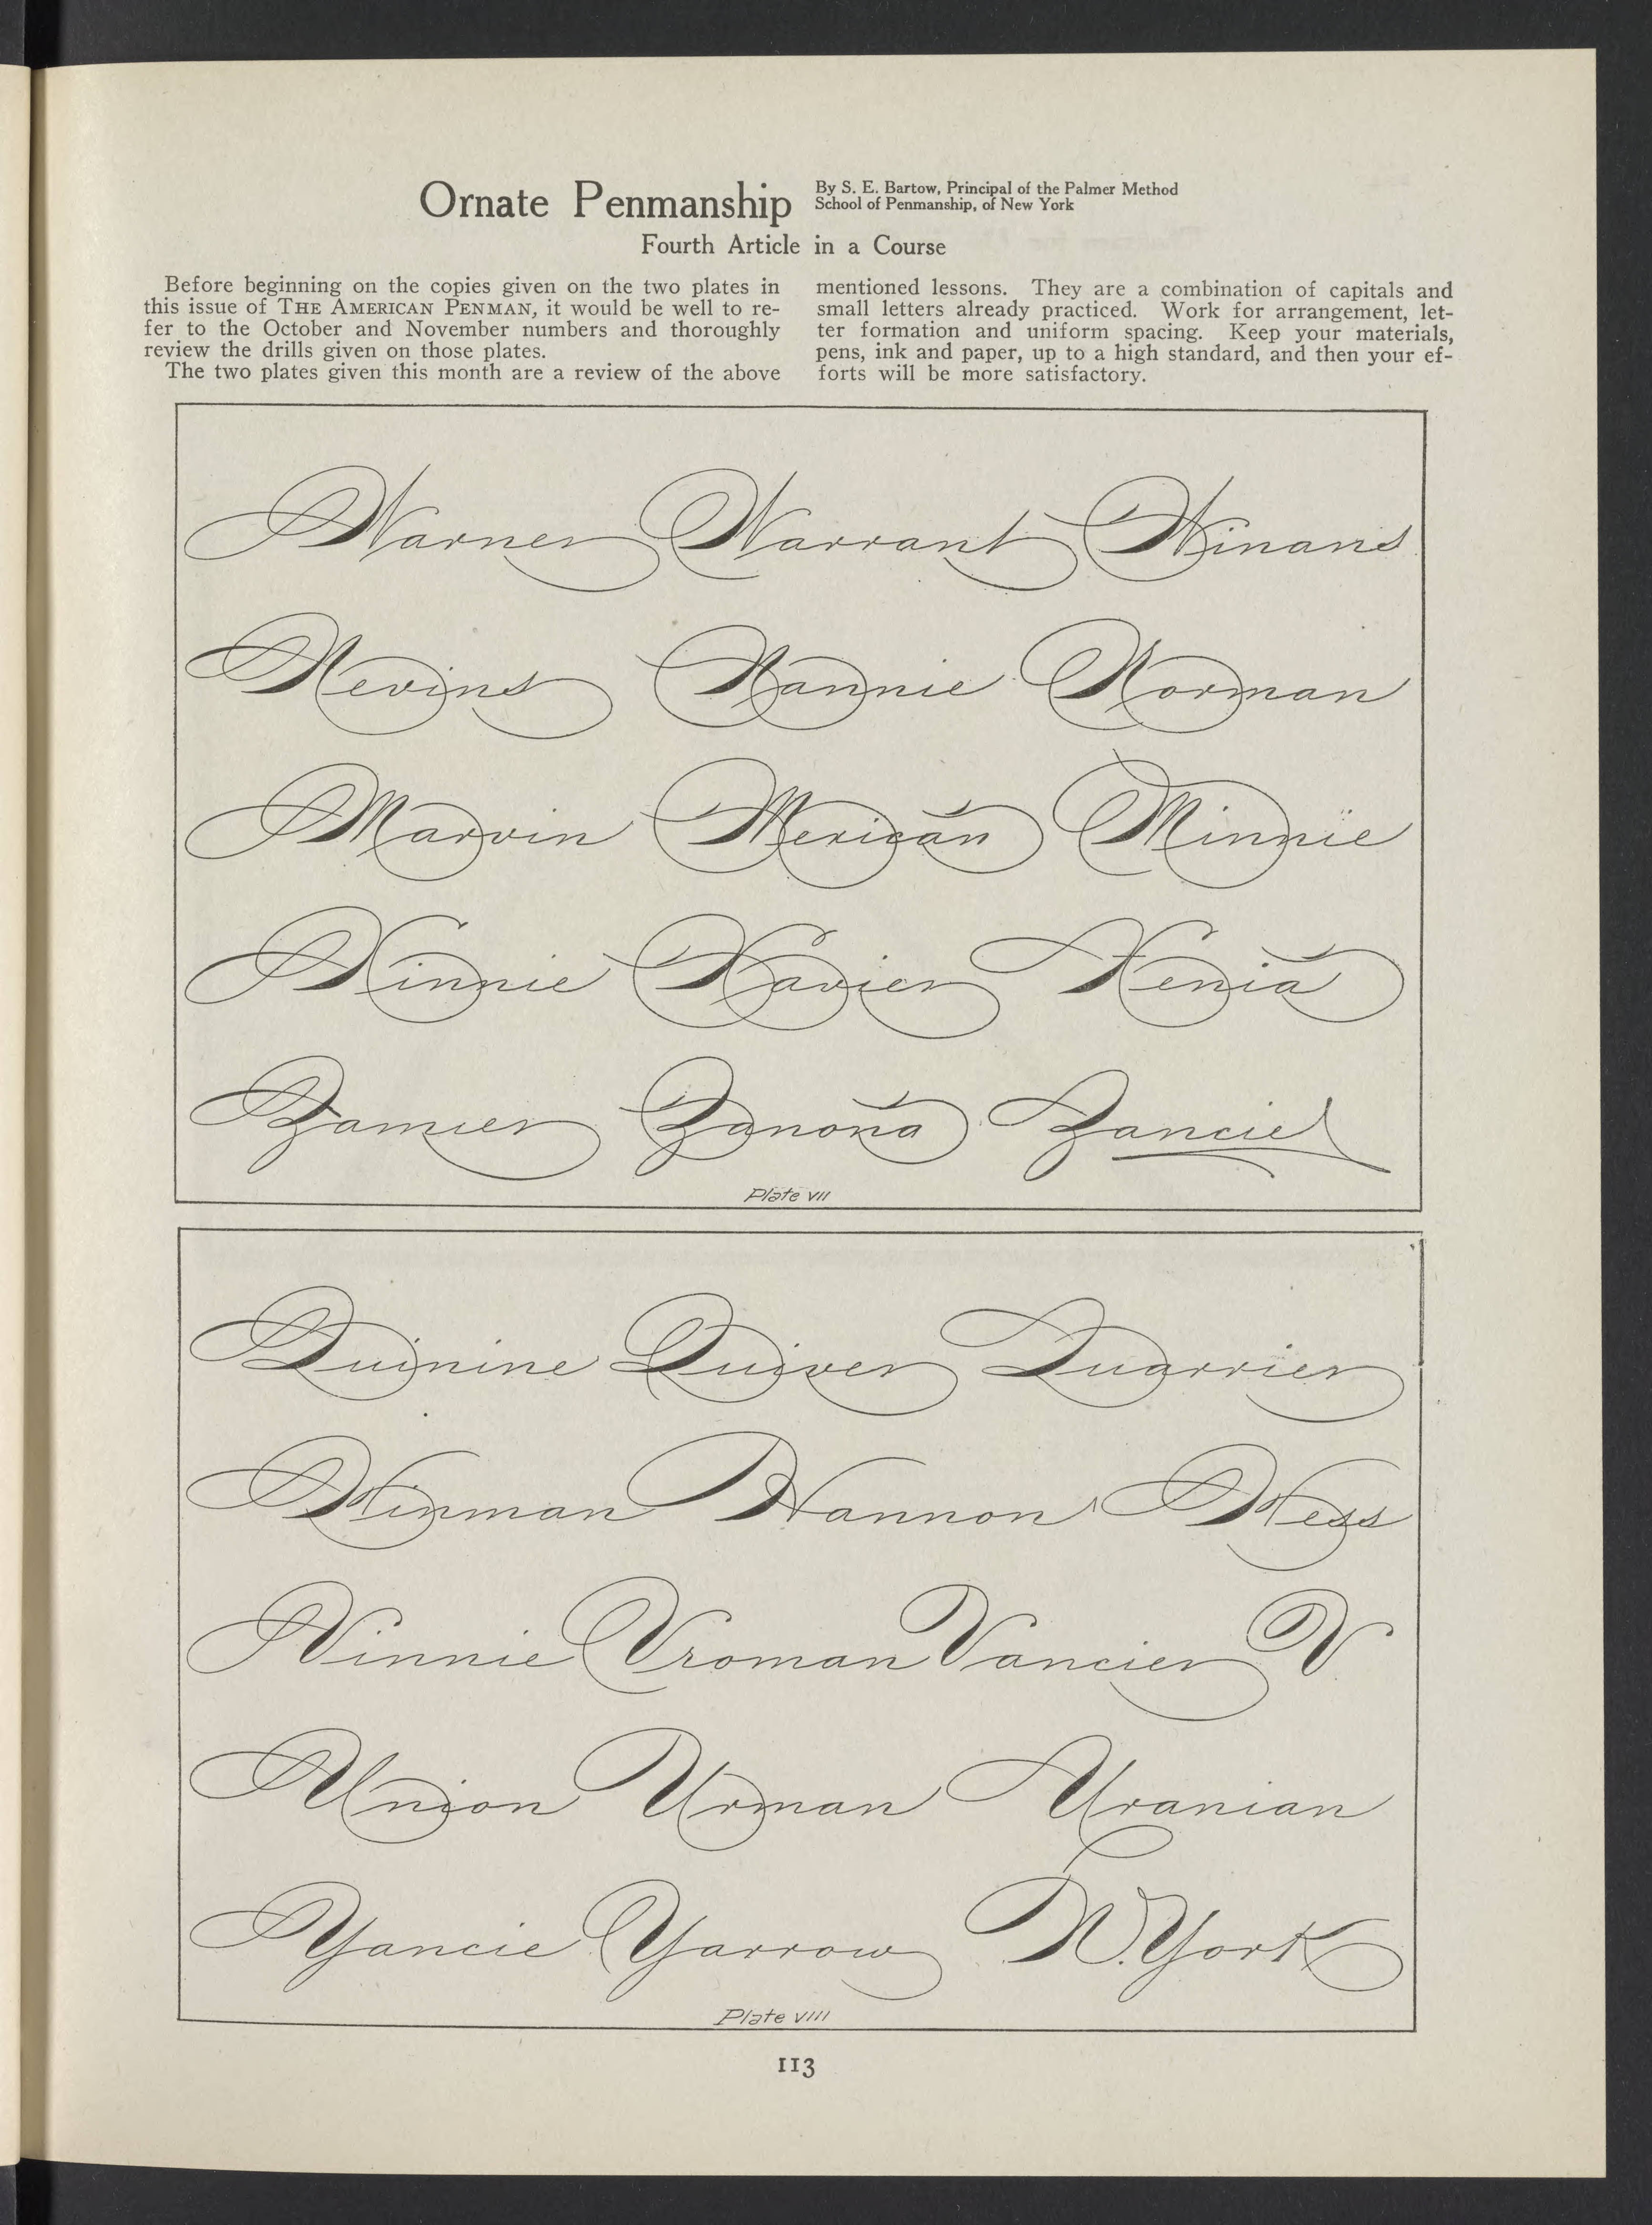 Ornate Penmanship
By S. E. Bartow, Principal of the Palmer Method
School of Penmanship, of New York
Fourth Article in a Course
Before beginning on the copies given on the two plates in
this issue of THE AMERICAN PENMAN, it would be well to re-
fer to the October and November numbers and thoroughly
review the drills given on those plates.
The two plates given this month are a review of the above
mentioned lessons. They are a combination of capitals and
small letters already practiced. Work for arrangement, let-
ter formation and uniform spacing. Keep your materials,
pens, ink and paper, up to a high standard, and then your ef-
forts will be more satisfactory.
Warner Warrant Winans
Nevins Nannie Norman
Marvin Merican Minnie
Xinnie Xavier Xenia
Zamier Zanona Zancie
Plate VII
Quinine Quiver Quarrier
Hinman Hannon Hess
Vinnie Vroman Vancier V
Union Urman Uranian
Yancie Yarrow W. York
Plate VIII
113